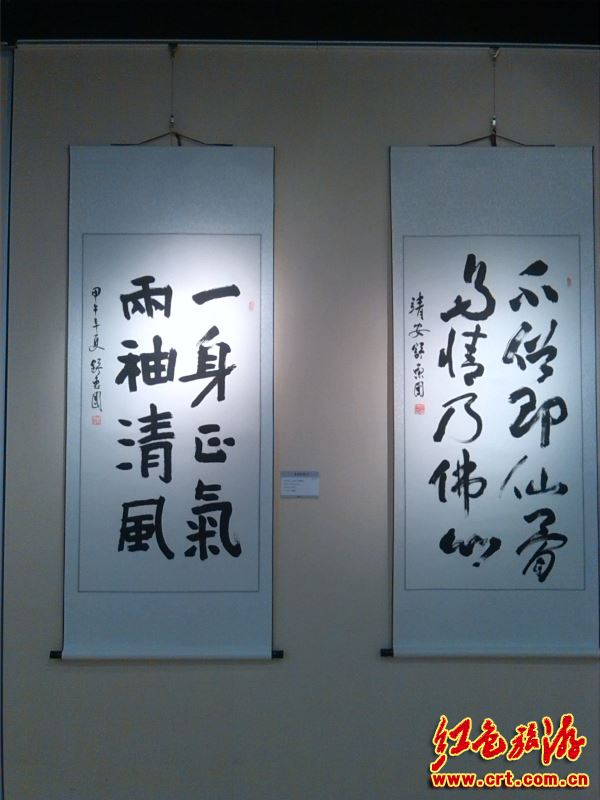 一身正氣
兩袖清風
甲午年夏 舒
不俗即仙骨
多情乃佛心
靖安舒
红色旅游
www.crt.com.cn